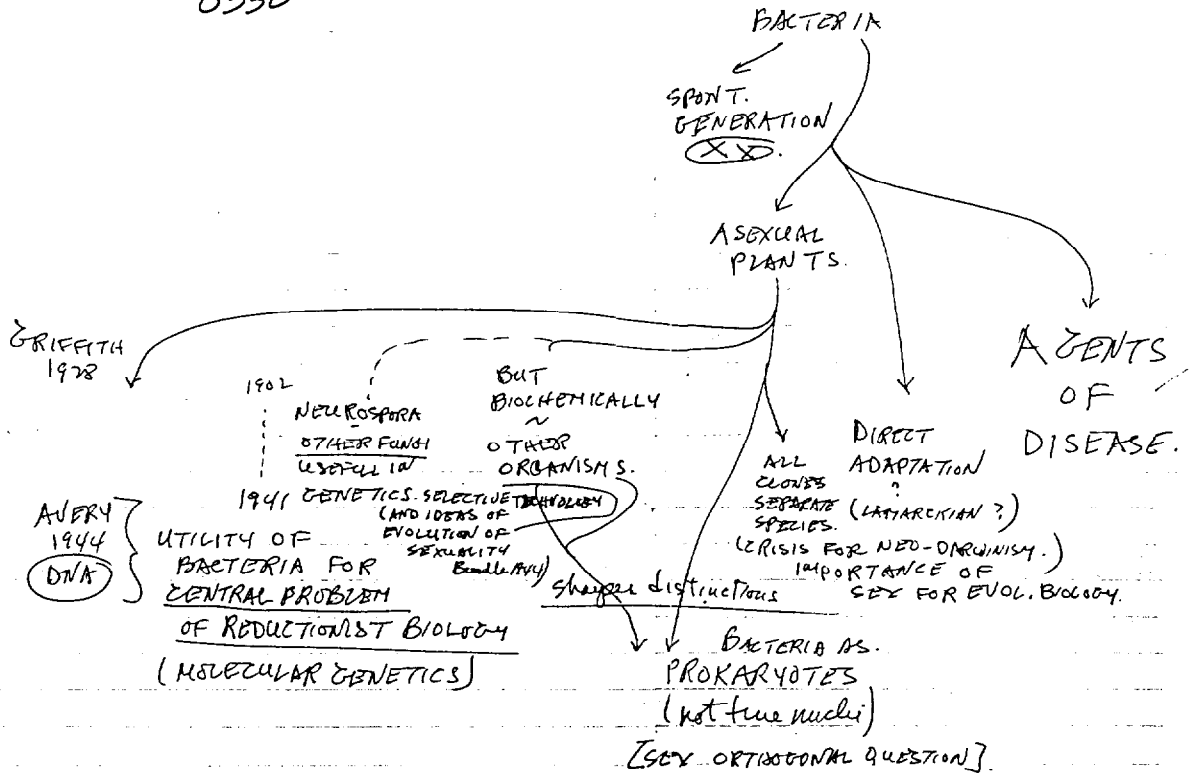 0330
BACTERIA
SPONT.
GENERATION
XX.
ASEXUAL
PLANTS.
AGENTS
OF
DISEASE.
GRIFFITH
1928
1902
1941
NEUROSPORA
OTHER FUNGI
USEFUL IN
GENETICS. SELECTIVE TECHNOLOGY
(AND IDEAS OF
EVOLUTION OF
SEXUALITY
BUT
BIOCHEMICALLY
~
OTHER
ORGANISMS.
ALL
CLONES
SEPARATE
SPECIES.
DIRECT
ADAPTATION
?
(LAMARCKIAN ?)
(CRISIS FOR NEO-DARWINISM.)
IMPORTANCE OF
SEX FOR EVOL. BIOLOGY.
AVERY
1944
DNA
UTILITY OF
BACTERIA FOR
CENTRAL PROBLEM
OF REDUCTIONIST BIOLOGY
(MOLECULAR GENETICS)
Sharper distinctions
BACTERIA AS.
PROKARYOTES
(not true nuclei)
[SEX ORTHOGONAL QUESTION]